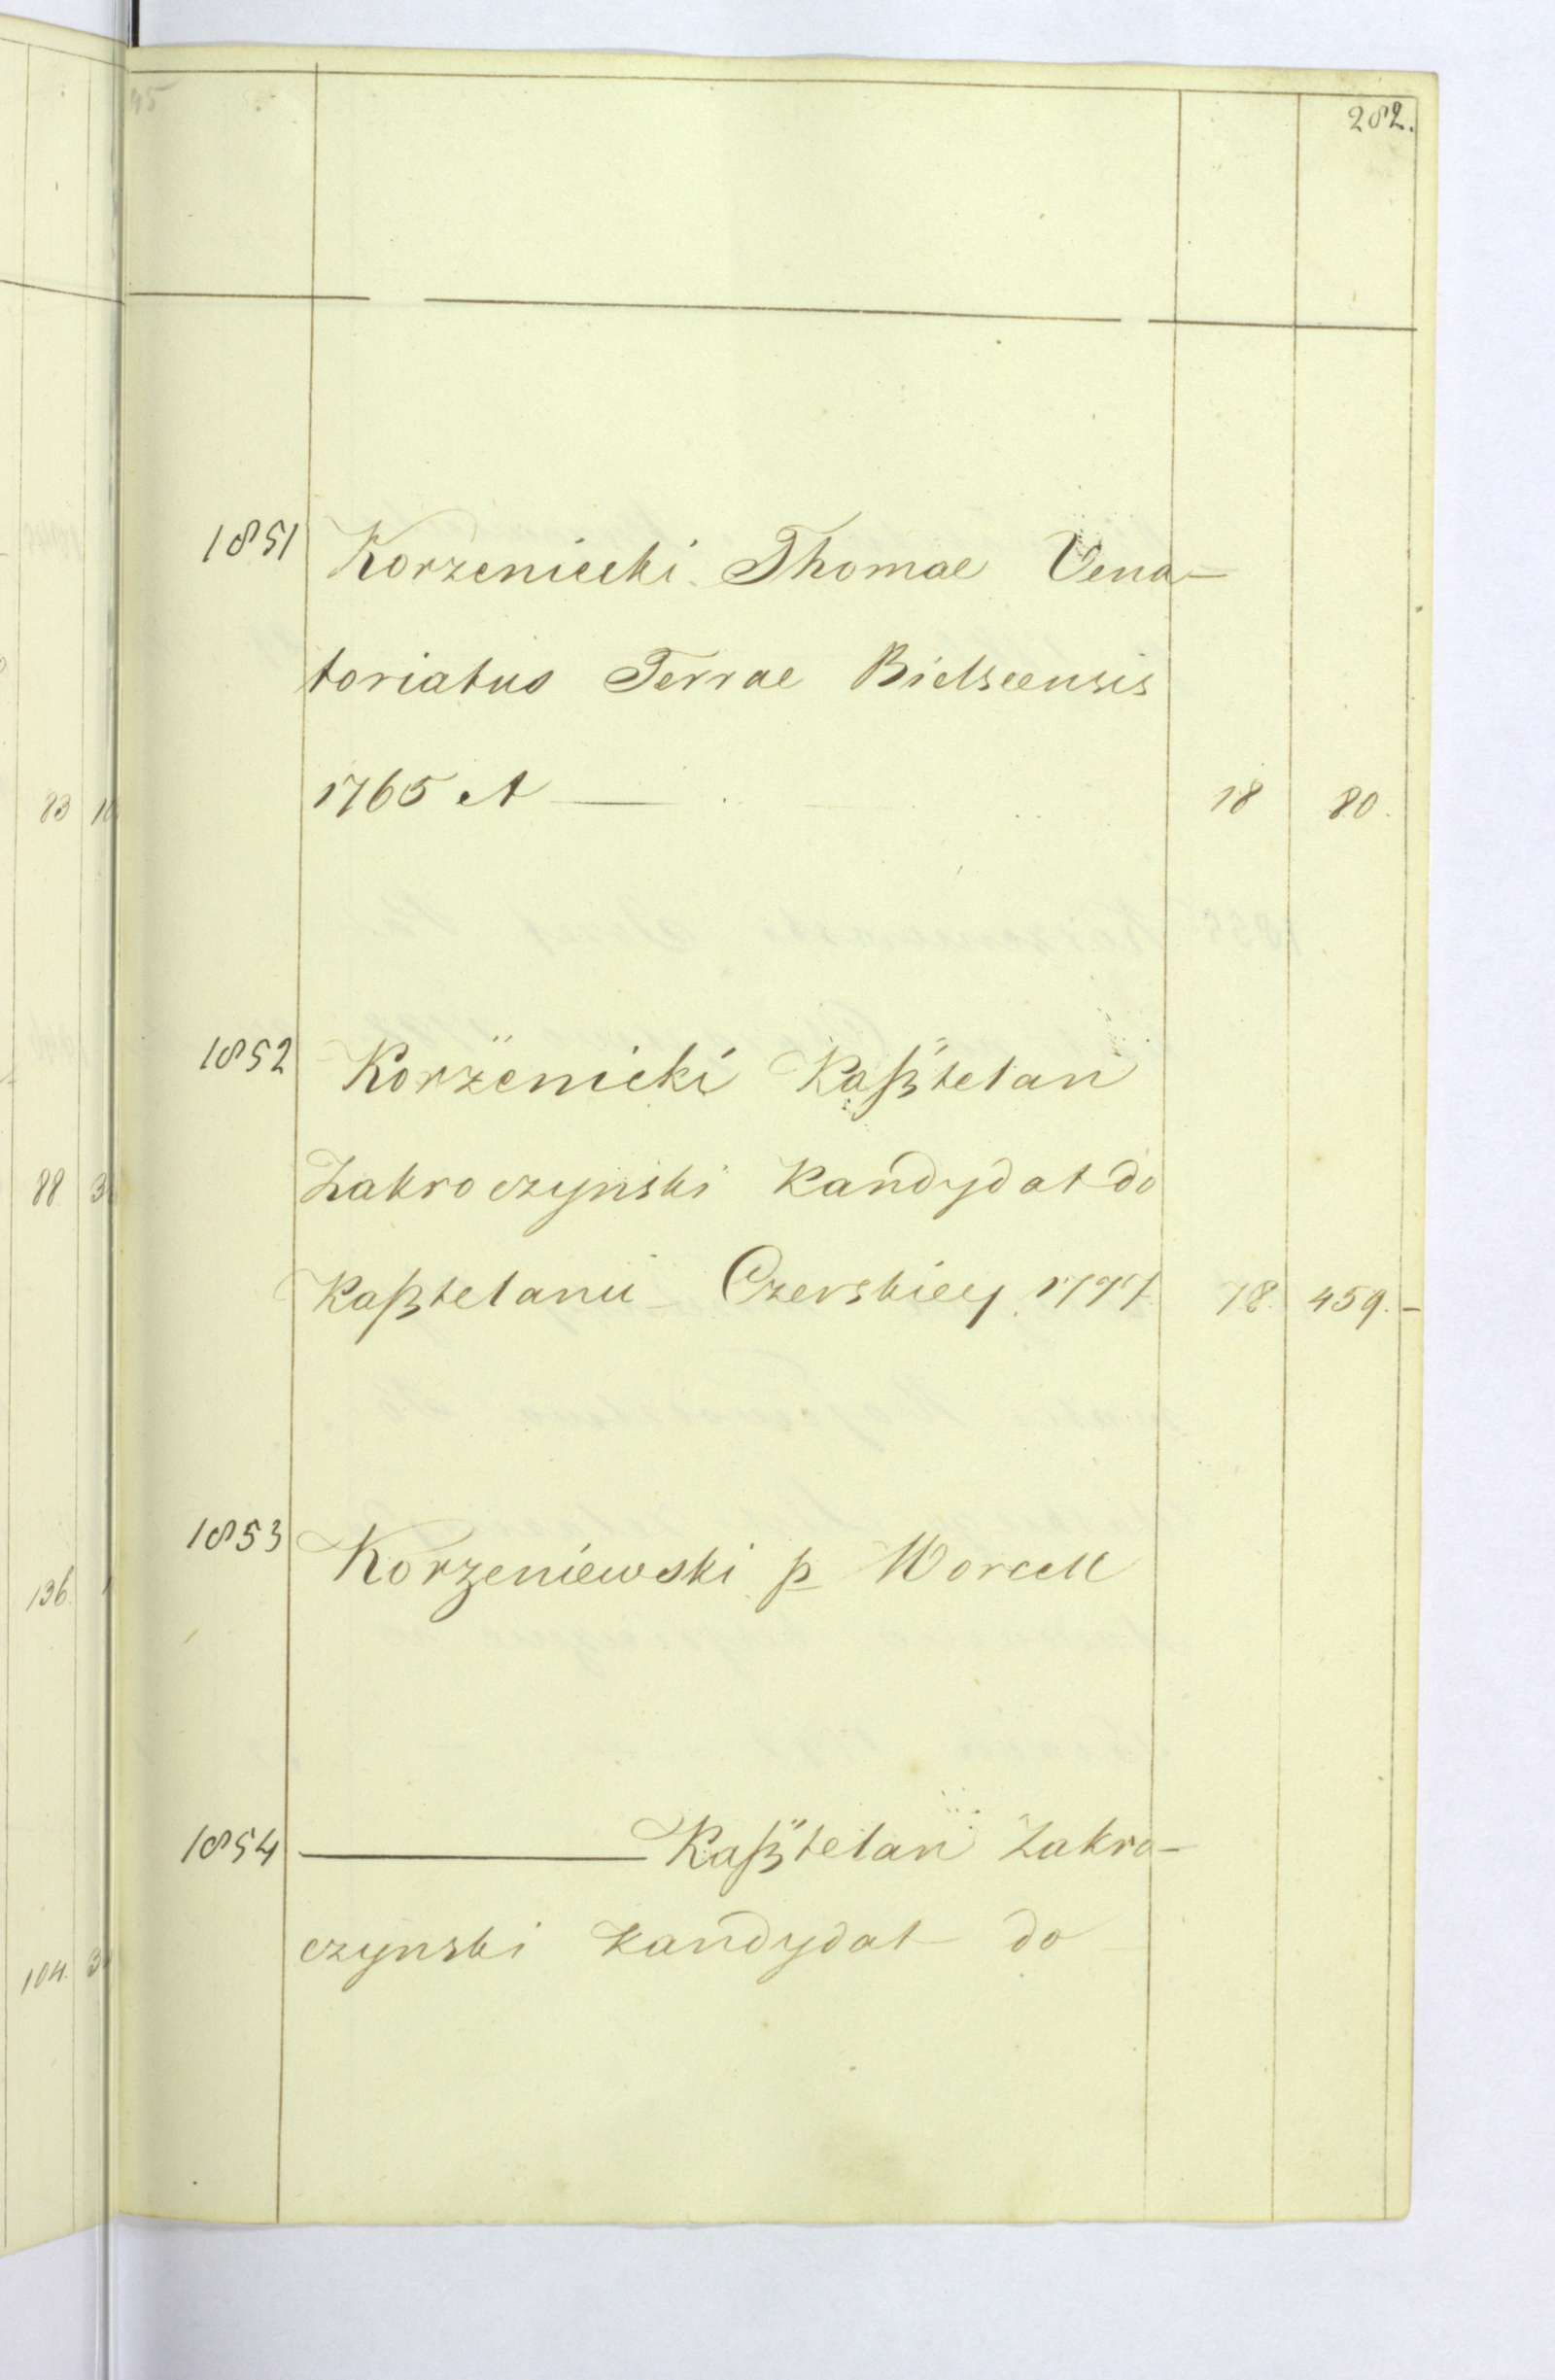 282.
1851 Korzeniecki Thomae Vena-
toriatus Terrae Bielscensis
1765 et — 18 80.
1852 Korzenicki Kaßtelan
Zakroczynski Kandydat do
Kaßtelanii Czerskiey 1777 78. 459.-
1853 Korzeniewski p Worcell
1854 ——— Kaßtelan Zakro-
czynski Kandydat do
83
88
136.
104.